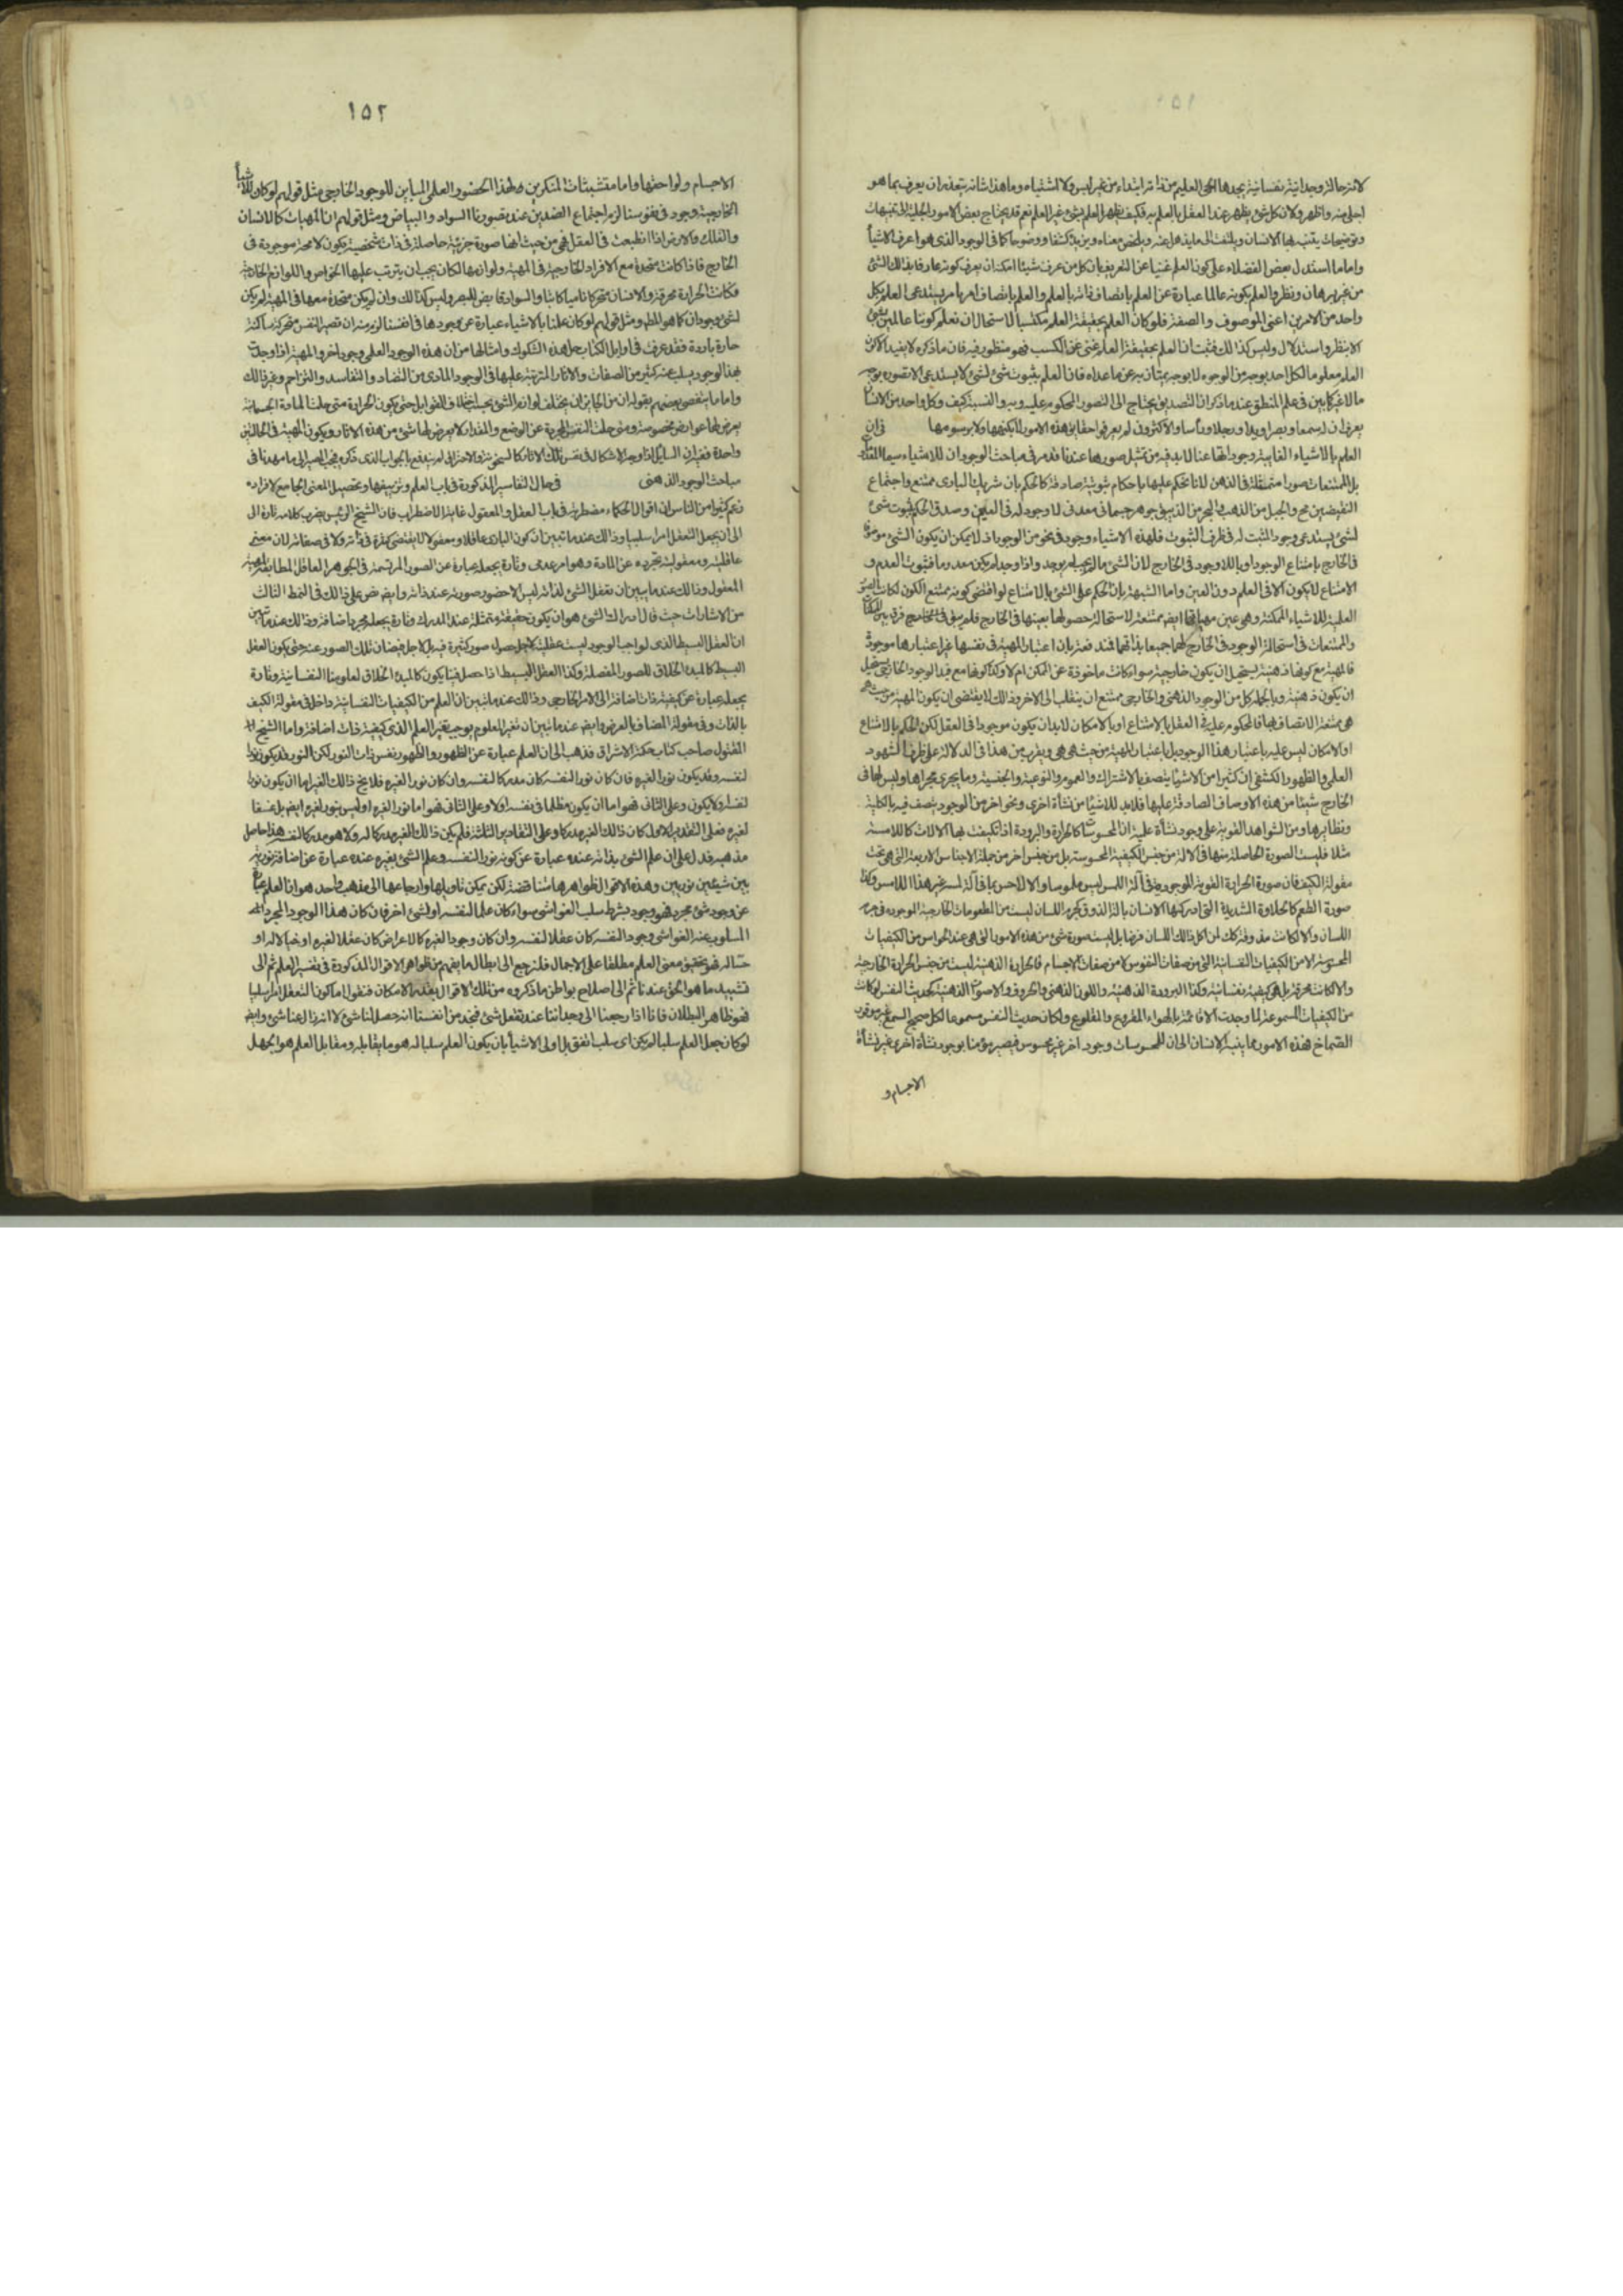 لانه حالة وجدانية نفسانية يجدها الحي العليم من ذاته ابتداء من غير لبس ولا اشتباه وما هذا شانه يتعذر ان يعرف بما هو
اجلى منه واظهر ولان كل شئ يظهر عند العقل بالعلم به فكيف يظهر العلم بشئ غير العلم نعم قد يحتاج بعض الامور الجلية الى تنبيهات
وتوضيحات يتنبه بها الانسان ويلتفت الى ما يذهل عنه ويلخص معناه ويزيده كشفا ووضوحا كما في الوجود الذي هو اعرف الاشيأ
واما ما استدل بعض الفضلاء على كون العلم غنيا عن التعريف بان كل من عرف شيئا امكنه ان يعرف كونه عارفا بذلك الشئ
من غير برهان ونظر والعلم بكونه عالما عبارة عن العلم باتصاف ذاته بالعلم والعلم باتصاف امر بامر يستدعى العلم بكل
واحد من الامرين اعنى الموصوف والصفة فلو كان العلم بحقيقة العلم مكتسبا لاستحال ان نعلم كوننا عالمين بشئ
الا بنظر واستدلال وليس كذالك فثبت ان العلم بحقيقة العلم غنى عن الكسب فهو منظور فيه فان ما ذكره لا يفيد الا كون
العلم معلوما لكل احد بوجه من الوجوه لا بوجه يمتاز به عن ما عداه فان العلم بثبوت شئ لشئ لا يستدعى الا تصوره بوجه
ما لا غير كما بين في علم المنطق عند ما ذكر ان التصديق يحتاج الى التصور المحكوم عليه وبه والنسبة كيف وكل واحد من الانسان
يعرف ان له سمعا وبصرا ويدا ورجلا ورأسا والاكثرون لم يعرفوا حقايق هذه الامور لا بكنهها ولا برسومها في ان
العلم بالاشياء الغايبة وجوداتها عنا لا بد فيه من تمثل صورها عندنا قد مر في مباحث الوجود ان للاشياء سيما
بل الممتنعات صورا متمثلة في الذهن لانا نحكم عليها باحكام ثبوتية صادقة كالحكم بان شريك البارى ممتنع واجتماع
النقيضين مح والجبل من الذهب والبحر من الزيبق جوهر جسمانى معدنى لا وجود له في العين وصدق الحكم بثبوت شئ
لشئ يستدعى وجود المثبت له في ظرف الثبوت فلهذه الاشياء وجود في نحو من الوجود اذ لا يمكن ان يكون الشئ موصوفا
في الخارج بامتناع الوجود او باللاوجود في الخارج لان الشئ ما لم يجب لم يوجد واذا وجد لم يكن معدوما فثبوت العدم و
الامتناع لا يكون الا في العلم دون العين واما الشبهة بان الحكم على الشئ بالامتناع لو اقتضى كونه ممتنع الكون لكانت الصور
العلمية للاشياء الممكنة وهى عين مهياتها ايضا ممتنعة لاستحالة حصولها بعينها في الخارج فلم يبق في الخارج فرق بين الممكنات
والممتنعات في استحالة الوجود في الخارج لهما جميعا بذاتهما فمندفعة بان اعتبار المهية في نفسها غير اعتبارها موجودة
فالمهية مع كونها ذهنية يستحيل ان يكون خارجية سواء كانت ماخوذة عن الممكن ام لا وكذا كونها مع قيد الوجود الخارجى يستحيل
ان يكون ذهنية وبالجملة كل من الوجود الذهنى والخارجى ممتنع ان ينقلب الى الاخر وذالك لا يقتضى ان يكون المهية من حيث هى
هى ممتنعة الاتصاف بها فالمحكوم عليه في العقل بالامتناع او بالامكان لا بد ان يكون موجودا في العقل لكن الحكم بالامتناع
او الامكان ليس عليه باعتبار هذا الوجود بل باعتبار المهية من حيث هى هى ويقرب من هذا في الدلالة على ظرف الشهود
العلمى والظهور الكشفى ان كثيرا من الاشيأ يتصف بالاشتراك والعموم والنوعية والجنسية وما يجرى مجراها وليس لها في
الخارج شيئا من هذه الاوصاف الصادقة عليها فلا بد للاشيأ من نشأة اخرى ونحو اخر من الوجود يتصف فيه بالكلية
ونظايرها ومن الشواهد القوية على وجود نشأة علمية ان المحسوسات كالحرارة والبرودة اذا تكيفت بها الالات كاللامسة
مثلا فليست الصورة الحاصلة منها في الآلة من جنس الكيفية المحسوسة بل من جنس اخر من جملة الاجناس الاربعة التى هى تحت
مقولة الكيف فان صورة الحرارة القوية الموجودة في آلة اللمس ليس ملموسا والا لاحس بها في آلة لمسه غير هذا اللامس وكذا
صورة الطعم كالحلاوة الشديدة التى ادركها الانسان بآلة الذوق كجرم اللسان ليست من المطعومات الخارجية الموجودة في جرم
اللسان والا لكانت مذوقة كك لمن اكل ذالك اللسان فرضا بل ليست صورة شئ من هذه الامور التى هى عند الحواس من الكيفيات
المحسوسة الا من الكيفيات النفسانية التى من صفات النفوس لا من صفات الاجسام فالحرارة الذهنية ليست من جنس الحرارة الخارجية
والا لكانت محرقة بل هى كيفية نفسانية وكذا البرودة الذهنية واللون الذهنى والحروف والاصوات الذهنية كحديث النفس لو كانت
من الكيفيات المسموعة لما وجدت الا قائمة بالهواء المقروع والمقلوع ولكان حديث النفس مسموعا لكل صحيح السمع غير موقور
الصماخ فهذه الامور مما ينبه الانسان الى ان للمحسوسات وجود اخر غير محسوس فيصير مؤمنا بوجود نشأة اخرى غير نشأة
الاجسام و
١٥٢
الاجسام ولواحقها واما متشبثات المنكرين لهذا الحضور العلمى المباين للوجود الخارجى مثل قولهم لو كان للاشيأ
الخارجية وجود في نفوسنا لزم اجتماع الضدين عند تصورنا السواد والبياض ومثل قولهم ان المهيات كالانسان
والفلك والارض اذا انطبعت في العقل فهى من حيث انها صورة جزئية حاصلة في ذات شخصية يكون لا محة موجودة في
الخارج فاذا كانت متحدة مع الافراد الخارجية في المهية ولوازمها لكان يجب ان يترتب عليها الخواص واللوازم الخارجية
فكانت الحرارة محرقة والانسان متحركا ناميا كاتبا والسواد قابض للبصر وليس كذالك وان لم يكن متحدة معها في المهية لم يكن
لشئ وجودان كما هو المط ومثل قولهم لو كان علمنا بالاشياء عبارة عن وجودها في انفسنا لزم منه ان تصير النفس متحركة ساكنة
حارة باردة فقد عرفت في اوايل الكتاب حل هذه الشكوك وامثالها من ان هذه الوجود العلمى وجود اخر والمهية اذا وجدت
بهذا الوجود يسلب عنه كثير من الصفات والاثار المترتبة عليها في الوجود المادى من التضاد والتفاسد والتزاحم وغير ذالك
واما ما يتفصى بعضهم بقوله ان من الجايز ان يختلف لوازم الشئ بحسب اختلاف القوابل حتى يكون الحرارة متى حلت المادة الجسمانية
يعرض لها عوارض مخصوصة ومتى حلت النفس المجردة عن الوضع والمقدار لا يعرض لها شئ من هذه الاثار ويكون المهية في الحالتين
واحدة ففيه ان السايل اذا وجه الاشكال في نفس تلك الاثار كالسخونة والاحتراق لم يندفع بالجواب الذي ذكره فيجب المصير الى ما مهدنا في
مباحث الوجود الذهنى في حال التفاسير المذكورة في باب العلم وتزييفها وتحصيل المعنى الجامع لافراده
زعم كثيرا من الناس ان اقوال الحكماء مضطربة في باب العقل والمعقول غاية الاضطراب فان الشيخ الرئيس يضرب كلامه تارة الى
الى ان يجعل التعقل امرا سلبيا وذالك عند ما تبين ان كون البارى عاقلا ومعقولا لا يقتضى كثرة في ذاته ولا في صفاته لان معنى
عاقليته ومعقوليته تجرده عن المادة وهو امر عدمى وتارة يجعله عبارة عن الصور المرتسمة في الجوهر العاقل المطابقة لمهية
المعقول وذالك عند ما يبين ان تعقل الشئ لذاته ليس الا حضور صورته عند ذاته وايضا نص على ذالك في النمط الثالث
من الاشارات حيث قال ادراك الشئ هو ان يكون حقيقته متمثلة عند المدرك وتارة يجعله مجرد اضافة وذالك عند ما بين
ان العقل البسيط الذى لواجب الوجود ليست عقليته لاجل حصول صور كثيرة فيه بل لاجل فيضان تلك الصور عنه حتى يكون العقل
البسيط كالمبدء الخلاق للصور المفصلة وكذا العقل البسيط اذا حصل فينا يكون كالمبدء الخلاق لعلومنا النفسانية وتارة
يجعله عبارة عن كيفية ذات اضافة الى الامر الخارجى وذالك عند ما تبين ان العلم من الكيفيات النفسانية داخل في مقولة الكيف
بالذات وفي مقولة المضاف بالعرض وايضا عند ما تبين ان تغير المعلوم يوجب تغير العلم الذى كيفية ذات اضافة واما الشيخ
المقتول صاحب كتاب حكمة الاشراق فذهب الى ان العلم عبارة عن الظهور والظهور نفس ذات النور لكن النور قد يكون نورا
لنفسه وقد يكون نورا لغيره فان كان نورا لنفسه كان مدركا لنفسه وان كان نورا لغيره فلا يخ ذالك الغير اما ان يكون نورا
لنفسه او لا يكون وعلى الثانى فهو اما ان يكون مظلما في نفسه او لا وعلى الثانى فهو اما نورا لغيره او ليس بنور لغيره ايضا بل غسقا
لغيره فعلى التقدير الاول كان ذالك الغير مدركا وعلى التقادير الثلثة فلم يكن ذالك الغير مدركا له ولا هو مدركا لنفسه هذا حاصل
مذهبه فدل على ان علم الشئ بذاته عنده عبارة عن كونه نورا لنفسه وعلم الشئ بغيره عنده عبارة عن اضافة نورية
بين شيئين نوريين وهذه الاقوال ظواهرها متناقضة لكن يمكن تاويلها وارجاعها الى مذهب واحد هو ان العلم عبارة
عن وجود شئ مجرد فهو وجود بشرط سلب الغواشى سواء كان علما لنفسه او لشئ اخر فان كان هذا الوجود المجرد
المسلوب عنه الغواشى وجودا لنفسه كان عقلا لنفسه وان كان وجودا لغيره كالاعراض كان عقلا لغيره او خيالا له او
حسا له فهو تحقيق معنى العلم مطلقا على الاجمال فلنرجع الى ابطال ما يفهم من ظواهر الاقوال المذكورة في تفسير العلم ثم الى
تشييد ما هو الحق عندنا ثم الى اصلاح بواطن ما ذكروه من تلك الاقوال بقدر الامكان فنقول اما كون التعقل امرا سلبيا
فهو ظاهر البطلان فانا اذا رجعنا الى وجداننا عند تعقل شئ فنجد من انفسنا انه حصل لنا شئ لا انه زال عنا شئ وايضا
لو كان جعل العلم سلبا لم يكن اى سلب اتفق بل اولى الاشيأ بان يكون العلم سلبا له هو ما يقابله ومقابل العلم هو الجهل